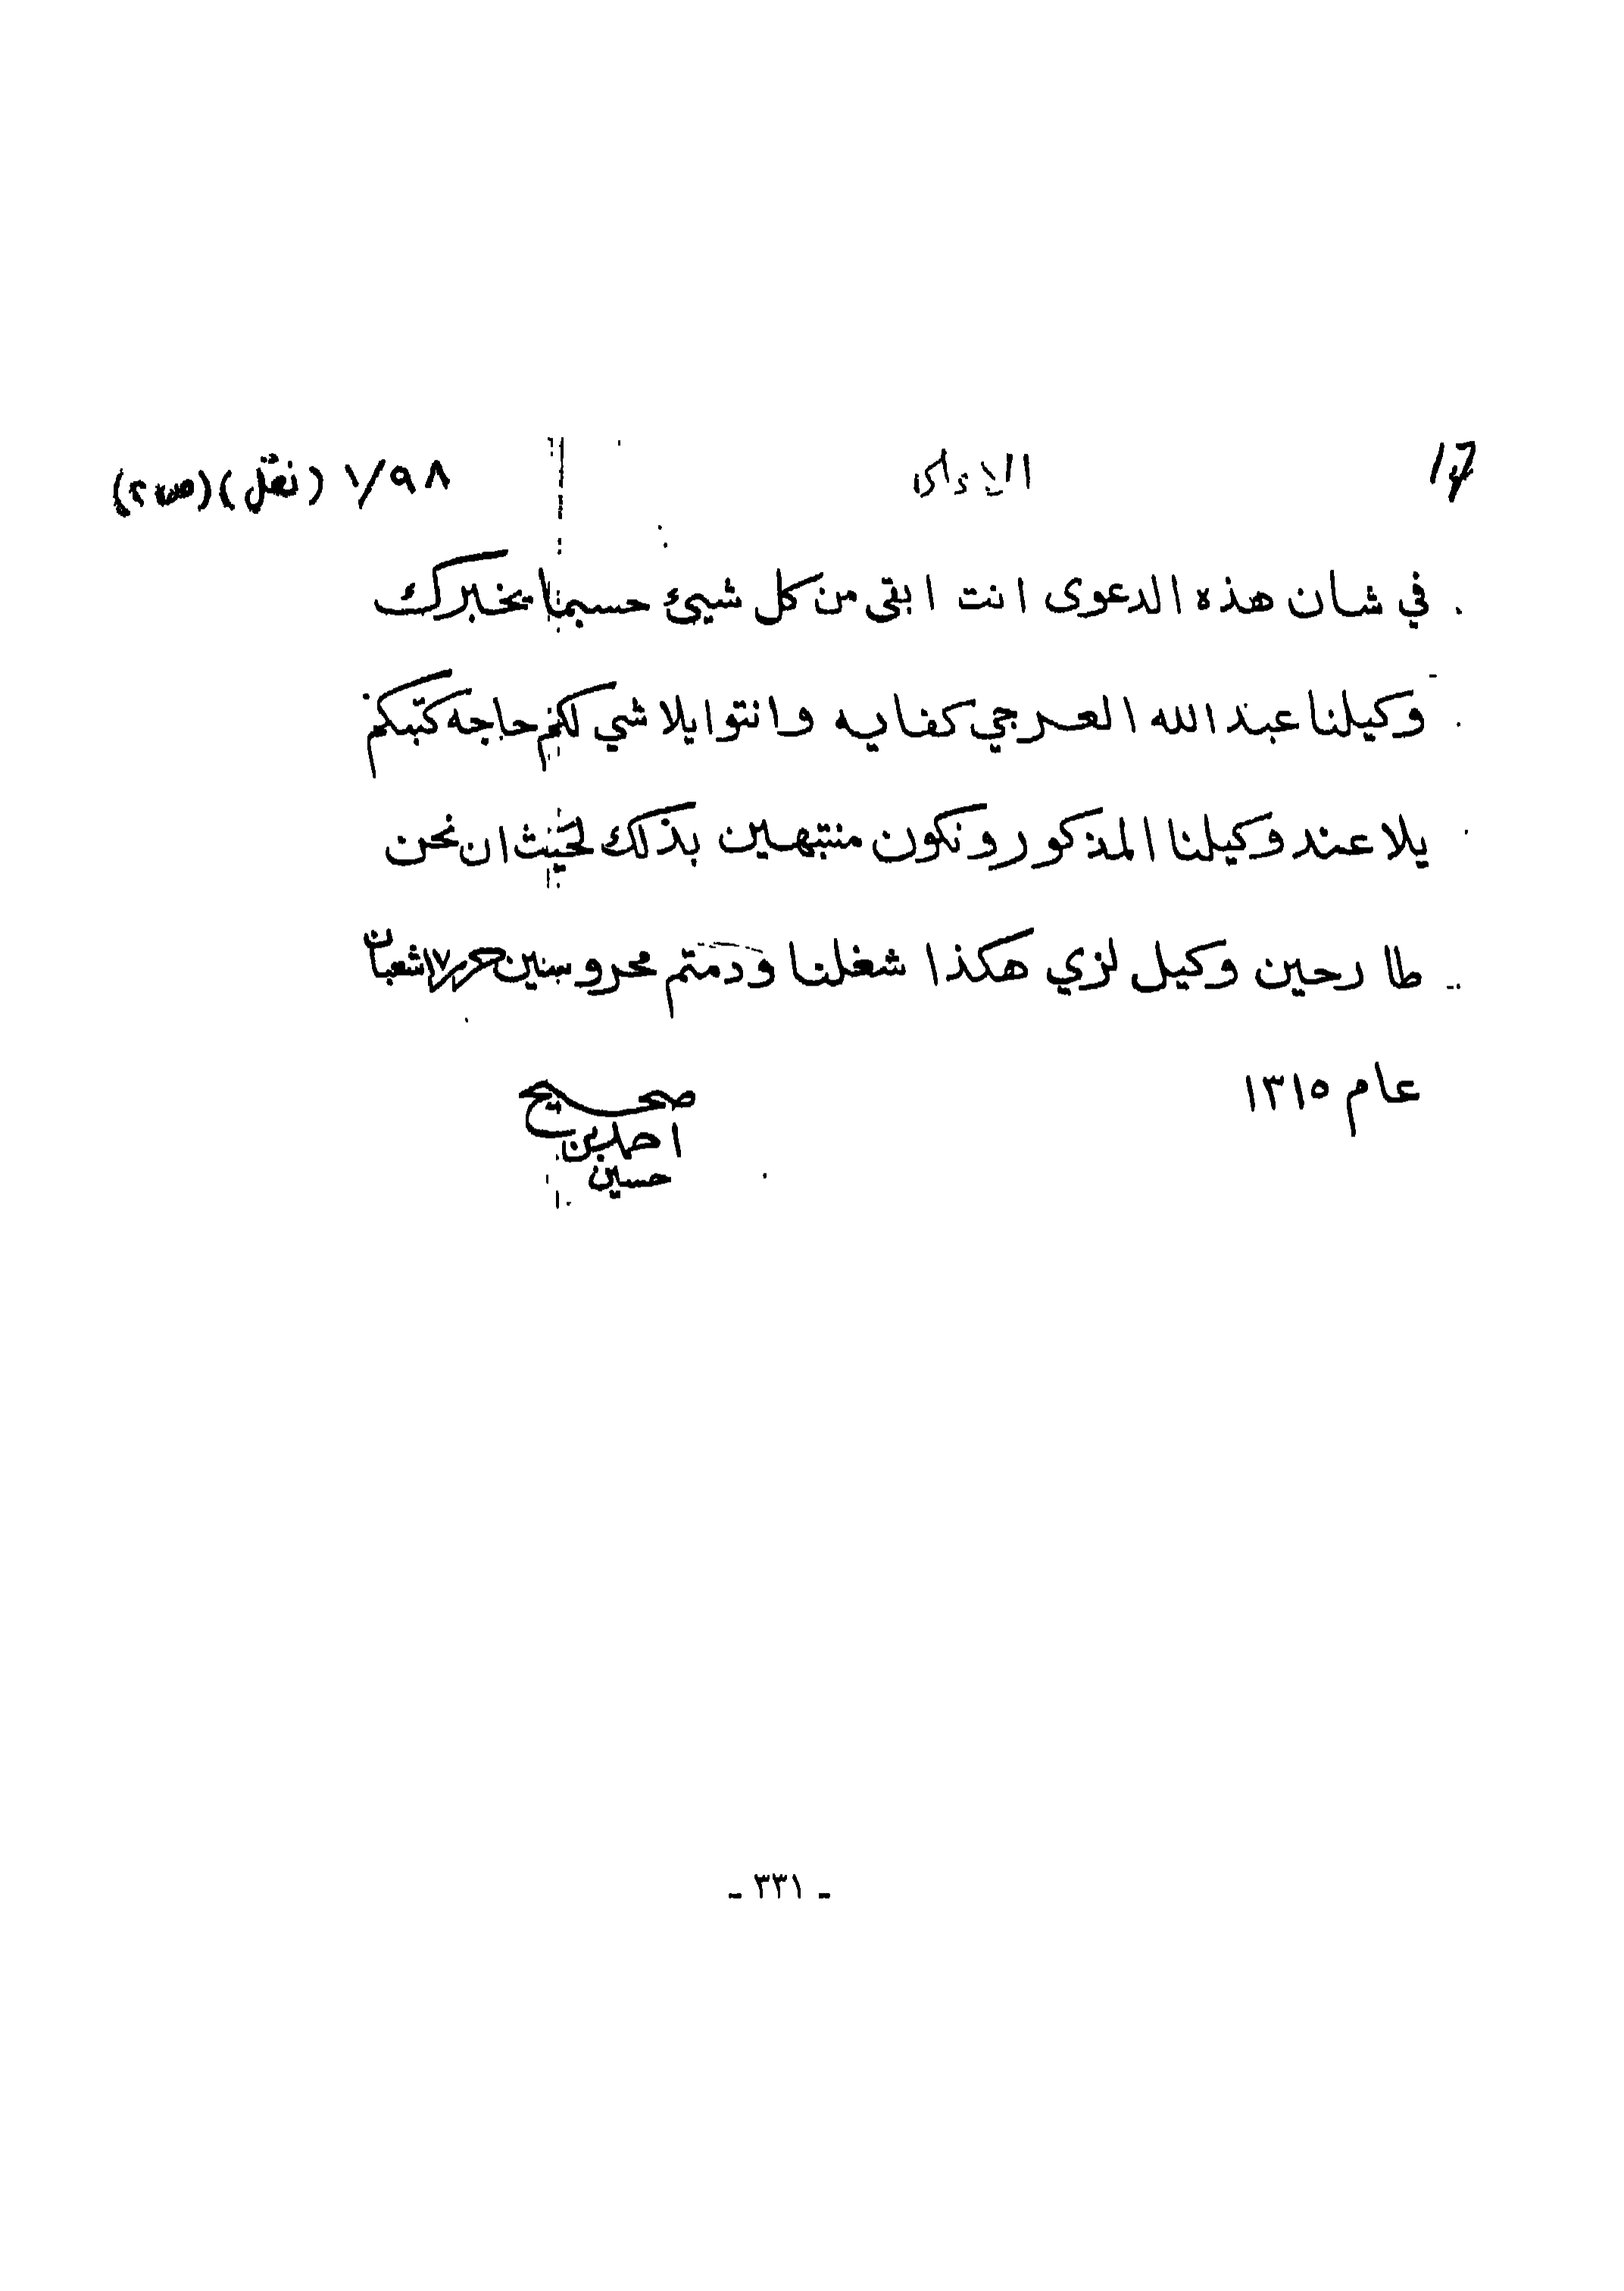 ١/٩٨ (نقل) (ص٢)
في شان هذه الدعوى انت ابقى من كل شيئ حسبما يخبرك
وكيلنا عبد الله العرجي كفايه وانتوا يلا شي لكم حاجه كتبكم
يلا عند وكيلنا المذكور ونكون منتبهين بذلك لحيث ان نحن
طارحين وكيل لزي هكذا شغلنا ودمتم محروسين حرر ١٧ شعبان
عام ١٣١٥
صحيح
احمد بن
حسين
- ٣٣١ -